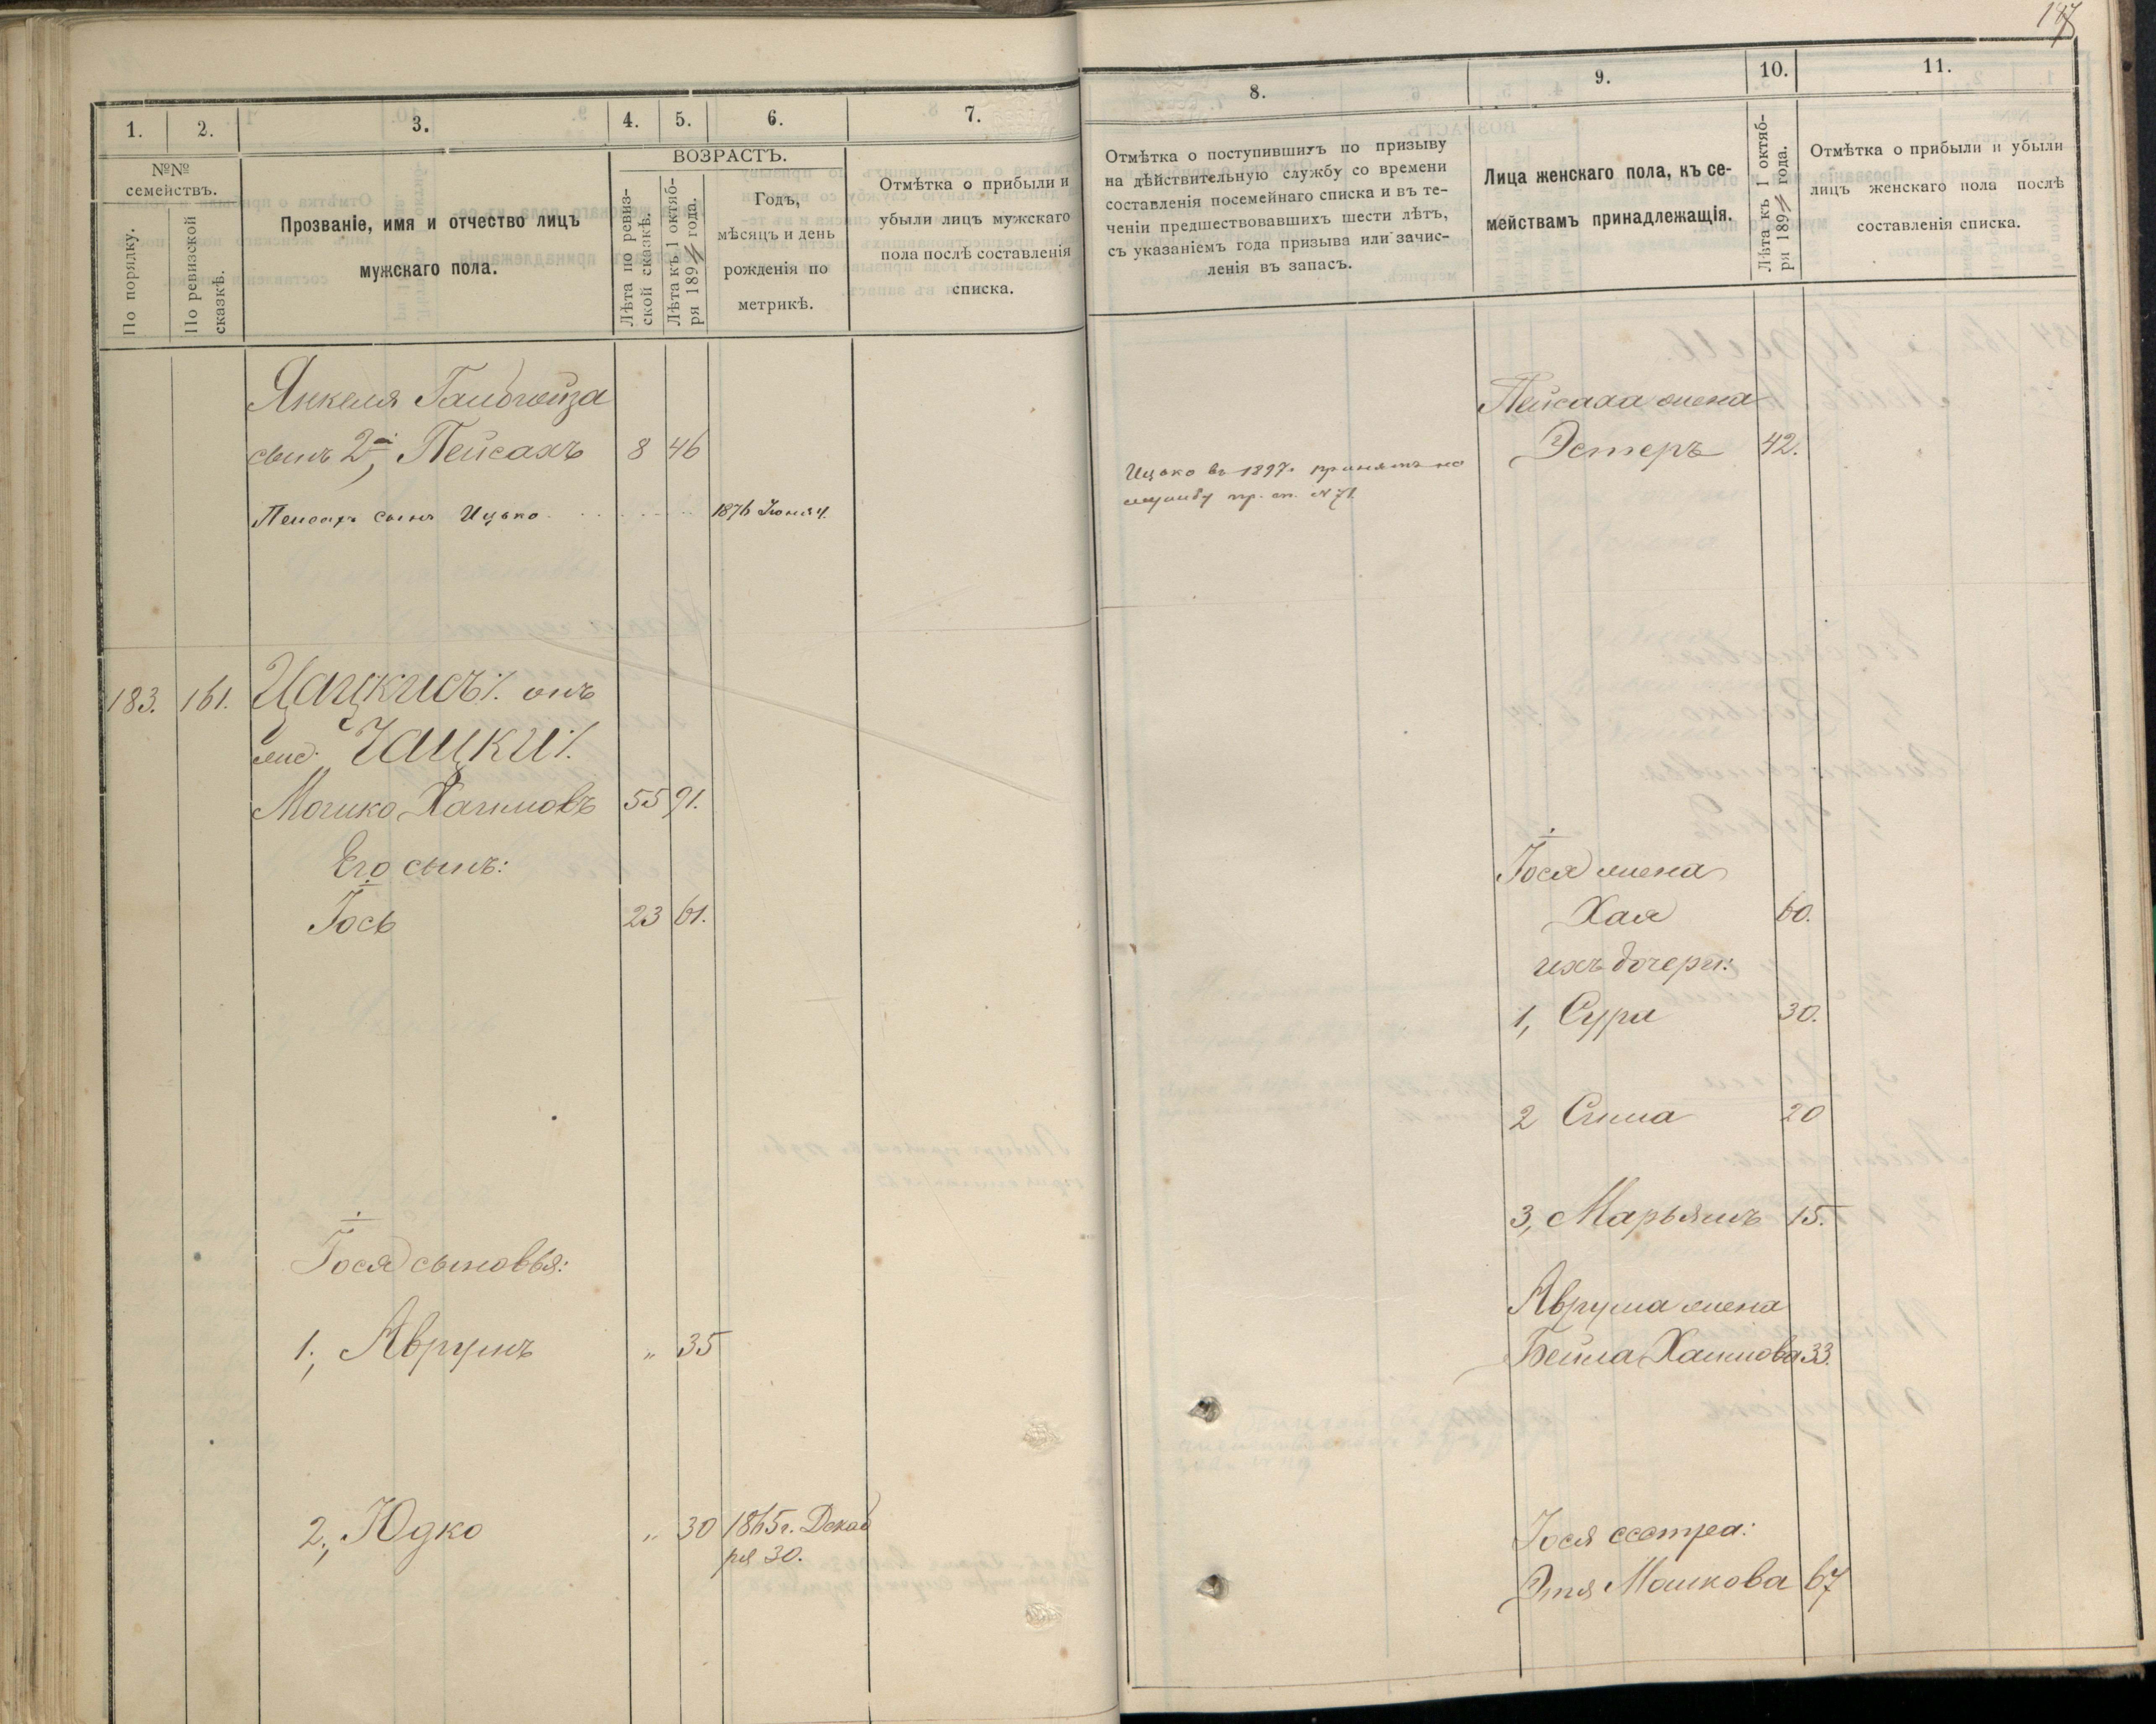 187
1.
2.
3.
4.
5.
6.
7.
№№
семействъ.
По порядку.
По ревизской
сказкѣ.
Прозваніе, имя и отчество лицъ
мужскаго пола.
ВОЗРАСТЪ.
Лѣта по ревиз-
ской сказкѣ.
Лѣта къ 1 октяб-
ря 189 года.
Годъ,
мѣсяцъ и день
рожденія по
метрикѣ.
Отмѣтка о прибыли и
убыли лицъ мужскаго
пола послѣ составленія
списка.
Янкеля
сынъ 2й, Пейсахъ 8 46
Пейсахъ сынъ Ицько 1876 Іюня 4.
183. 161. Цацкисъ
Чацки
Мошко Хаимовъ 55 91.
Его сынъ:
Іось 23 61.
Іося сыновья:
1., Аврумъ „ 35
2., Юдко „ 30 1865г. Декаб
ря 30.
8.
9.
10.
11.
Отмѣтка о поступившихъ по призыву
на дѣйствительную службу со времени
составленія посемейнаго списка и въ те-
ченіи предшествовавшихъ шести лѣтъ,
съ указаніемъ года призыва или зачис-
ленія въ запасъ.
Лица женскаго пола, къ се-
мействамъ принадлежащія.
Лѣта къ 1 октяб-
ря 189 года.
Отмѣтка о прибыли и убыли
лицъ женскаго пола послѣ
составленія списка.
Пейсаха жена
Эстеръ 42.
Ицько въ 1897г. принятъ на
службу пр. сп. №71.
Іося жена
Хая 60.
ихъ дочери:
1, Сура 30.
2 Сима 20
3, Марьямъ 15.
Аврума жена
Бейла Хаимова 33.
Іося сестра:
Этя Мошкова 67